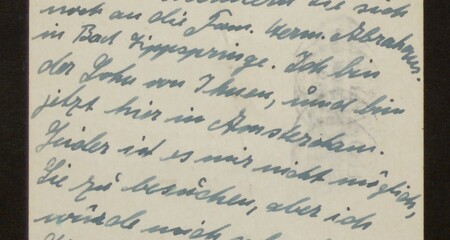 sie sich
noch an die Fam. Herm. Abrahams.
in Bad Lippspringe. Ich bin
der Sohn von Ihnen, und bin
jetzt hier in Amsterdam.
Leider ist es mir nicht möglich,
Sie zu besuchen, aber ich
würde mich